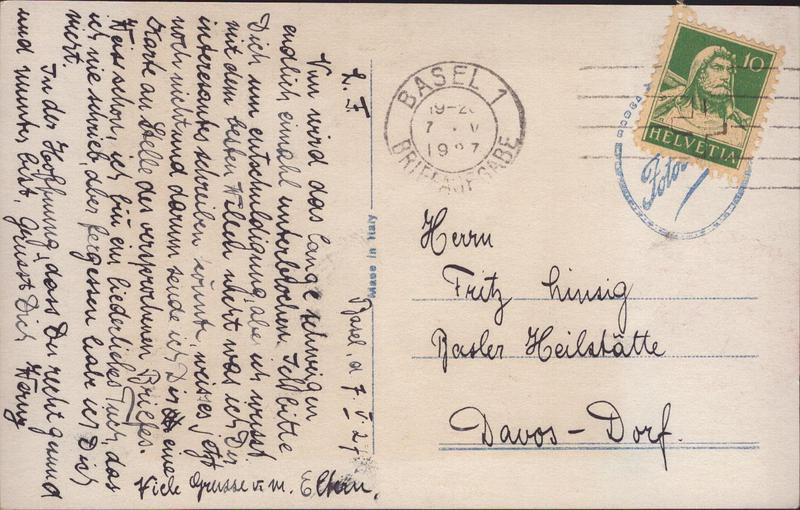 L. F.
Basel, d 7. V. 27
Nun wird das lange schweigen
endlich einmahl unterbrochen. Ich bitte
Dich um entschuldigung, aber ich wusst
mit dem besten Willen nicht was ich Dir
interessantes schreiben könnte, weiss es jetzt
noch nicht und darum sende ich Dir eine
Karte an Stelle des versprochenen Briefes.
Weiss schon, ich bin ein liederliches Tuch, das
ich nie schrieb, aber fergessen habe ich Dich
nicht.
In der Hoffnung, dass Du recht gesund
und munter bist, grüsst Dich
Viele Grüsse v. m. Eltern.
Made in Italy
BASEL 1
19-20
7. V
1927
BRIEFAUFGABE
10
HELVETIA
Foto
Herrn
Fritz Linsig
Basler Heilstätte
Davos-Dorf.